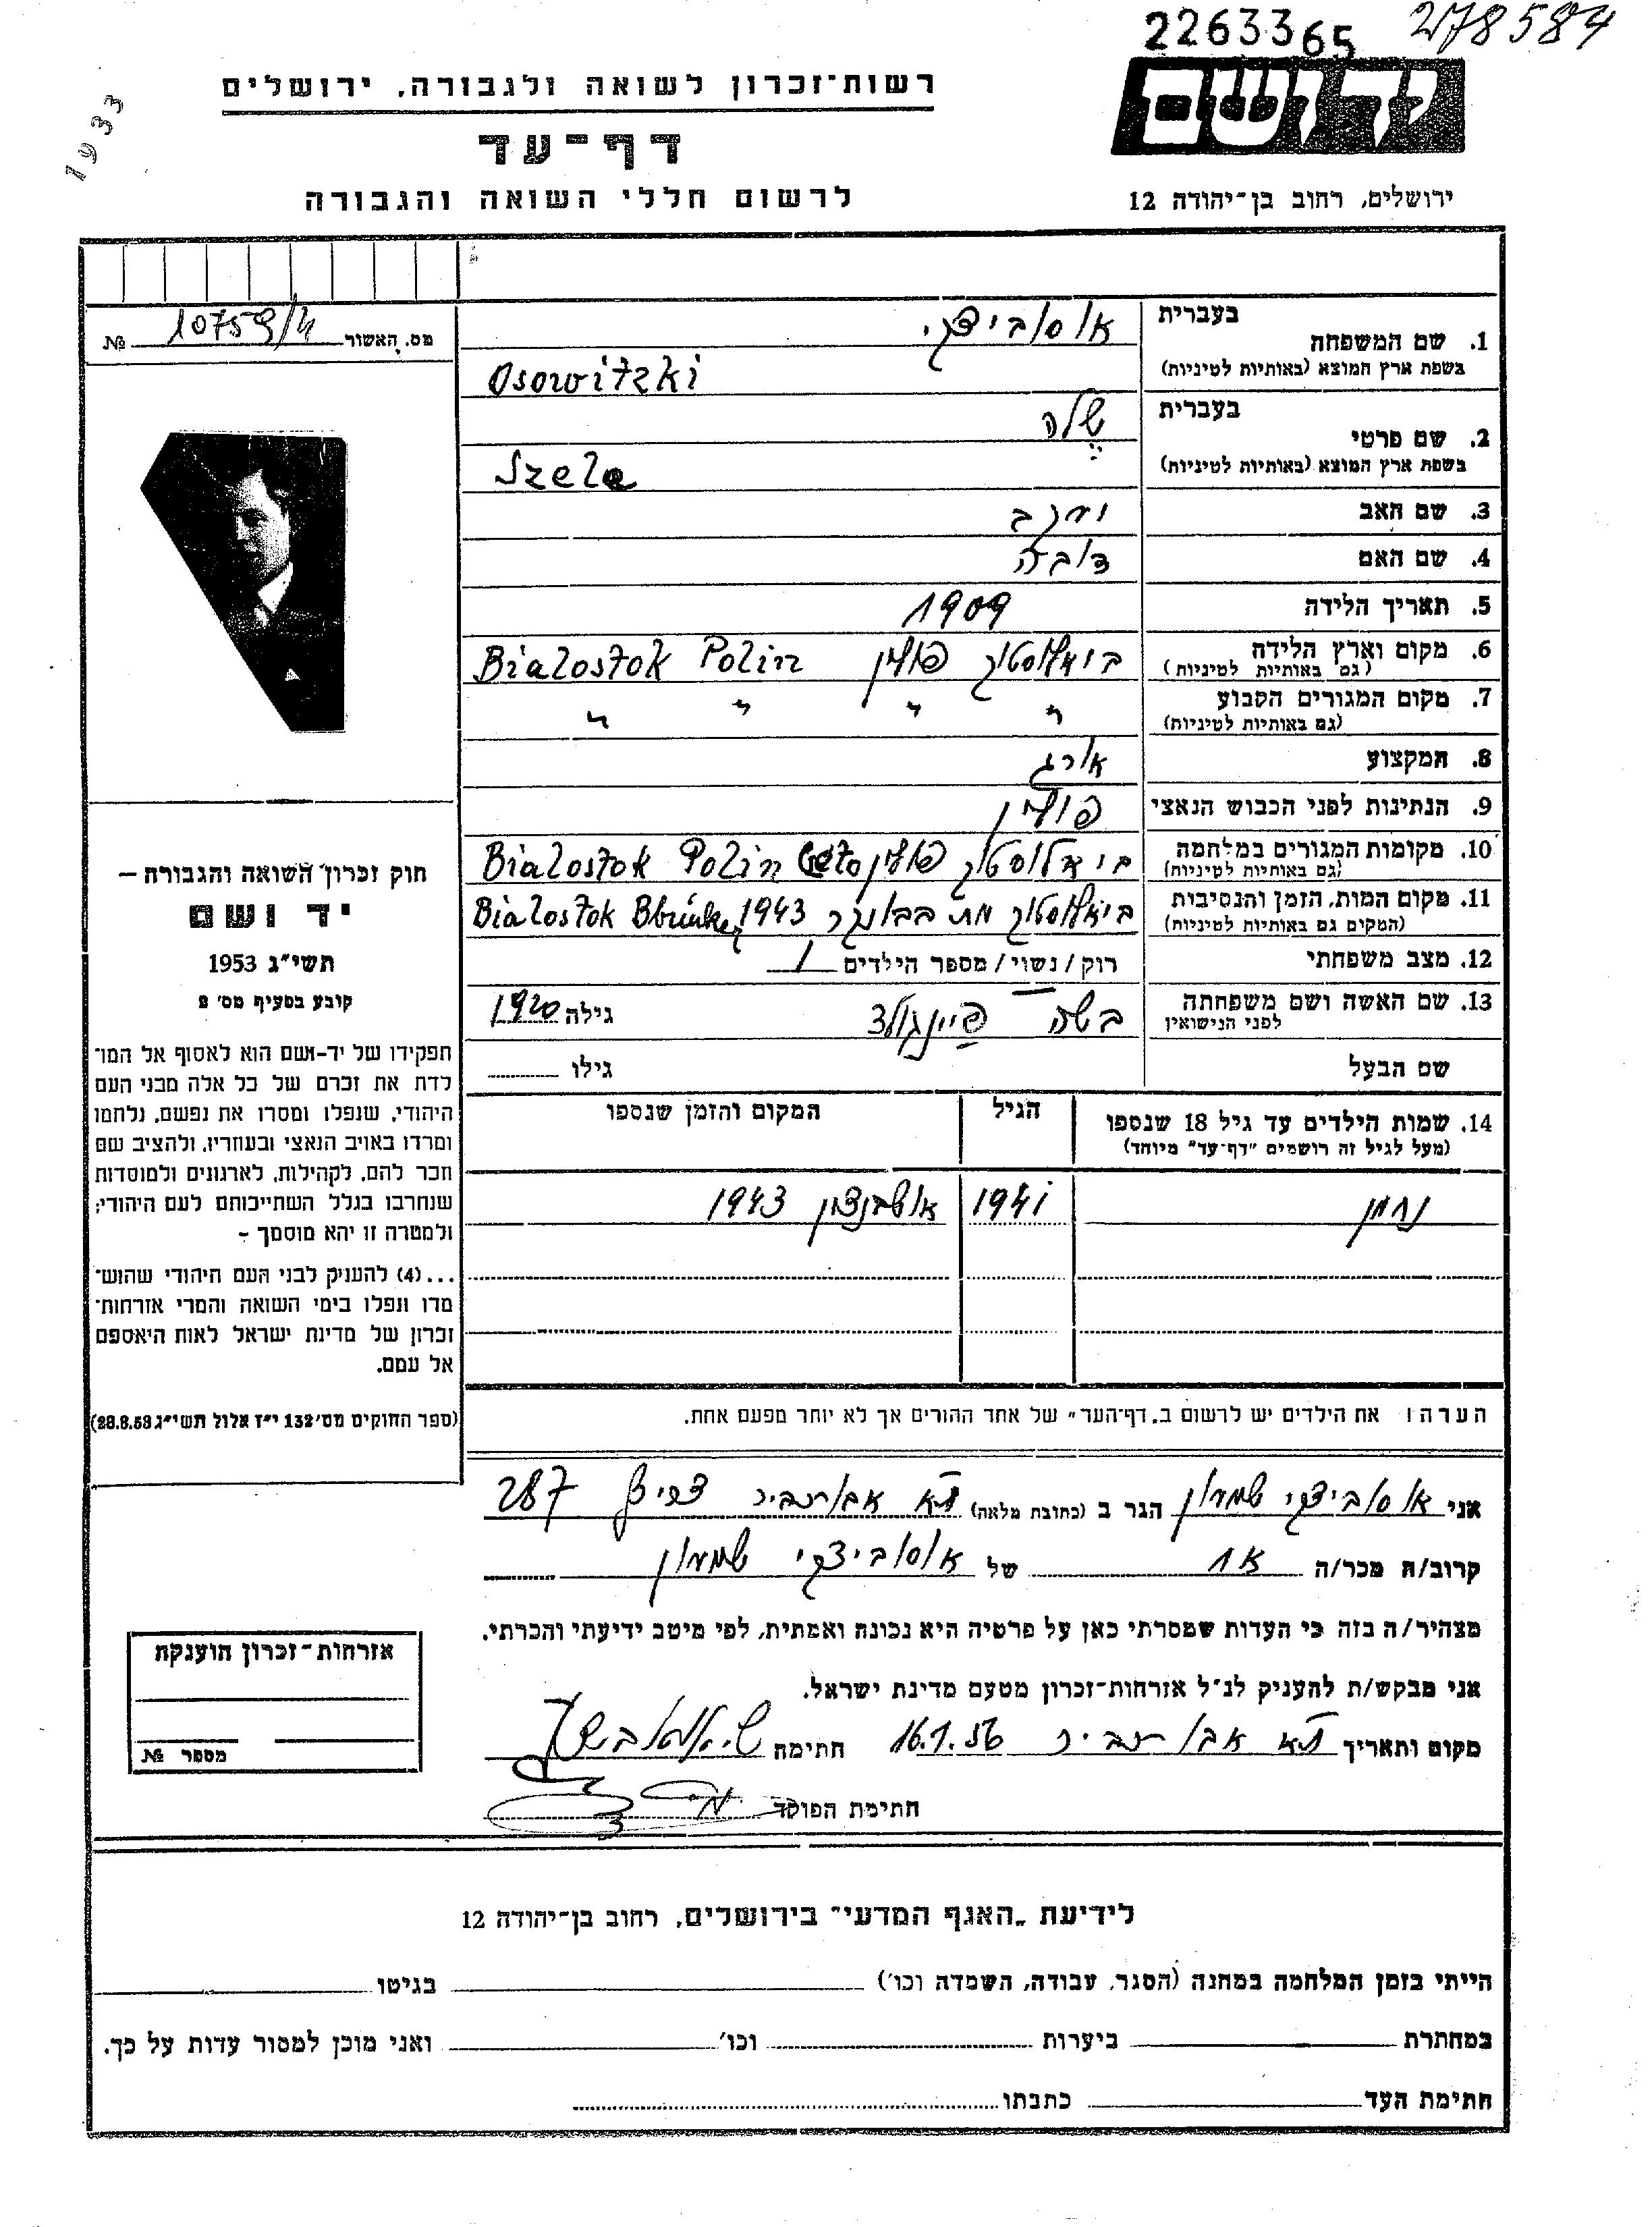 22633 65 278584
1933
רשות־זכרון לשואה ולגבורה, ירושלים
יד ושם
דף־עד
לרשום חללי השואה והגבורה
ירושלים, רחוב בן־יהודה 12
מס. האשור 10759/4 №
1. שם המשפחה
בעברית אוסוביצקי
בשפת ארץ המוצא (באותיות לטיניות) Osowitzki
2. שם פרטי
בעברית שלה
בשפת ארץ המוצא (באותיות לטיניות) Szele
3. שם האב יעקב
4. שם האם דובה
5. תאריך הלידה 1909
6. מקום וארץ הלידה ביאליסטוק פולין Bialostok Polin
(גם באותיות לטיניות)
7. מקום המגורים הקבוע " " " "
(גם באותיות לטיניות)
8. המקצוע אורג
9. הנתינות לפני הכבוש הנאצי פולין
10. מקומות המגורים במלחמה ביאליסטוק פולין Bialostok Polin Geto
(גם באותיות לטיניות)
11. מקום המות, הזמן והנסיבית ביאליסטוק מת בבונקר 1943 Bialostok
(המקום גם באותיות לטיניות)
12. מצב משפחתי רוק / נשוי / מספר הילדים 1
13. שם האשה ושם משפחתה בשה פיינגולד גילה 1920
לפני הנישואין
שם הבעל גילו
14. שמות הילדים עד גיל 18 שנספו הגיל המקום והזמן שנספו
(מעל לגיל זה רושמים "דף־עד" מיוחד)
נחמן 1941 אושבנצין 1943
הערה: את הילדים יש לרשום ב"דף־העד" של אחד ההורים אך לא יותר מפעם אחת.
חוק זכרון השואה והגבורה —
יד ושם
תשי"ג 1953
קובע בסעיף מס' 2
תפקידו של יד-ושם הוא לאסוף אל המו־
לדת את זכרם של כל אלה מבני העם
היהודי, שנפלו ומסרו את נפשם, נלחמו
ומרדו באויב הנאצי ובעוזריו, ולהציב שם
וזכר להם, לקהילות, לארגונים ולמוסדות
שנחרבו בגלל השתייכותם לעם היהודי;
ולמטרה זו יהא מוסמך -
...(4) להעניק לבני העם היהודי שהוש־
מדו ונפלו בימי השואה והמרי אזרחות־
זכרון של מדינת ישראל לאות היאספם
אל עמם.
(ספר החוקים מס' 132 י"ז אלול תשי"ג 28.8.53)
אני אוסוביצקי שמעון הגר ב (כתובת מלאה) ת"א אבו כביר צריף 287
קרוב/ה מכר/ה אח של אוסוביצקי שמעון
מצהיר/ה בזה כי העדות שמסרתי כאן על פרטיה היא נכונה ואמתית, לפי מיטב ידיעתי והכרתי.
אני מבקש/ת להעניק לנ"ל אזרחות־זכרון מטעם מדינת ישראל.
מקום ותאריך ת"א אבו כביר 16.1.56 חתימה
חתימת הפוקד
אזרחות־זכרון הוענקה
מספר №
לידיעת "האגף המדעי" בירושלים, רחוב בן־יהודה 12
הייתי בזמן המלחמה במחנה (הסגר, עבודה, השמדה וכו') בגיטו
במחתרת ביערות וכו' ואני מוכן למסור עדות על כך.
חתימת העד כתבתו